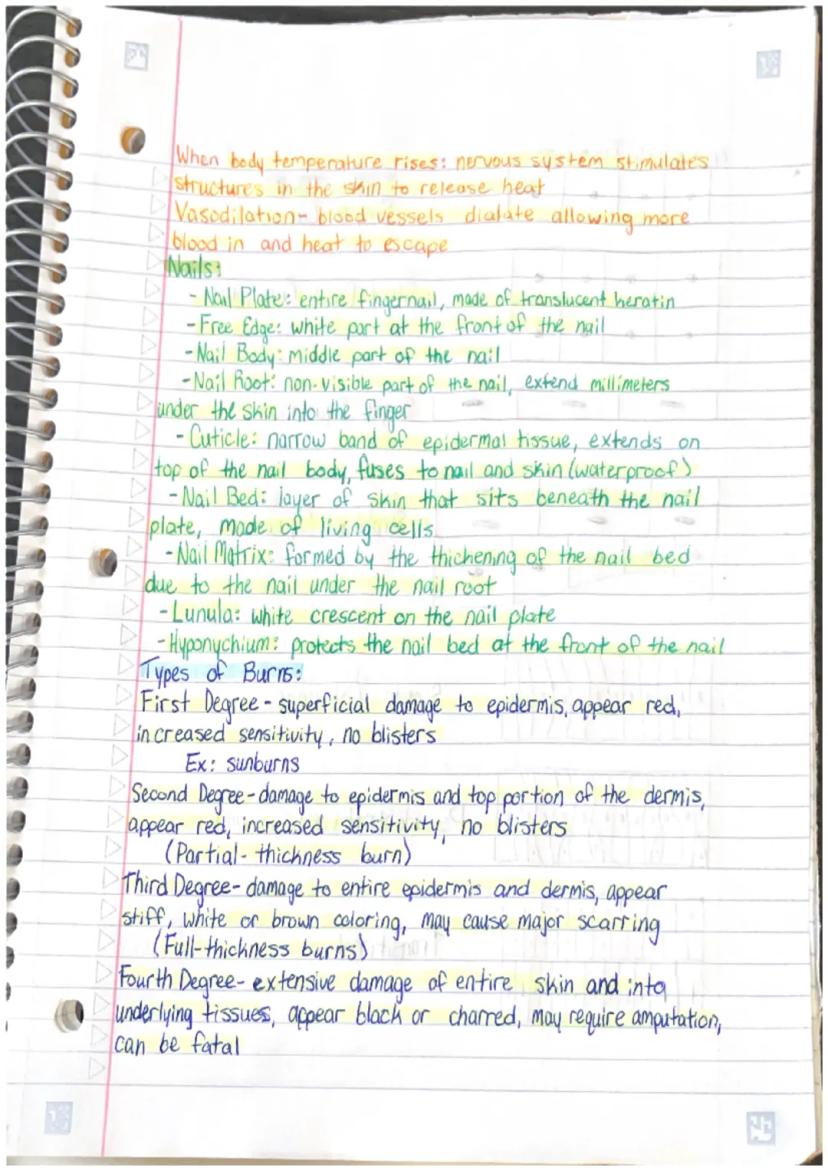 When body temperature rises: nervous system stimulates
structures in the skin to release heat
Vasodilation- blood vessels dialate allowing more
blood in and heat to escape
Nails:
- Nail Plate: entire fingernail, made of translucent keratin
- Free Edge: white part at the front of the nail
- Nail Body: middle part of the nail
- Nail Root: non-visible part of the nail, extend millimeters
under the skin into the finger
- Cuticle: narrow band of epidermal tissue, extends on
top of the nail body, fuses to nail and skin (waterproof)
- Nail Bed: layer of skin that sits beneath the nail
plate, made of living cells
- Nail Matrix: formed by the thickening of the nail bed
due to the nail under the nail root
- Lunula: white crescent on the nail plate
- Hyponychium: protects the nail bed at the front of the nail
Types of Burns:
First Degree - superficial damage to epidermis, appear red,
increased sensitivity, no blisters
Ex: sunburns
Second Degree- damage to epidermis and top portion of the dermis,
appear red, increased sensitivity, no blisters
(Partial- thickness burn)
Third Degree- damage to entire epidermis and dermis, appear
stiff, white or brown coloring, may cause major scarring
(Full-thickness burns)
Fourth Degree- extensive damage of entire skin and into
underlying tissues, appear black or charred, may require amputation,
can be fatal